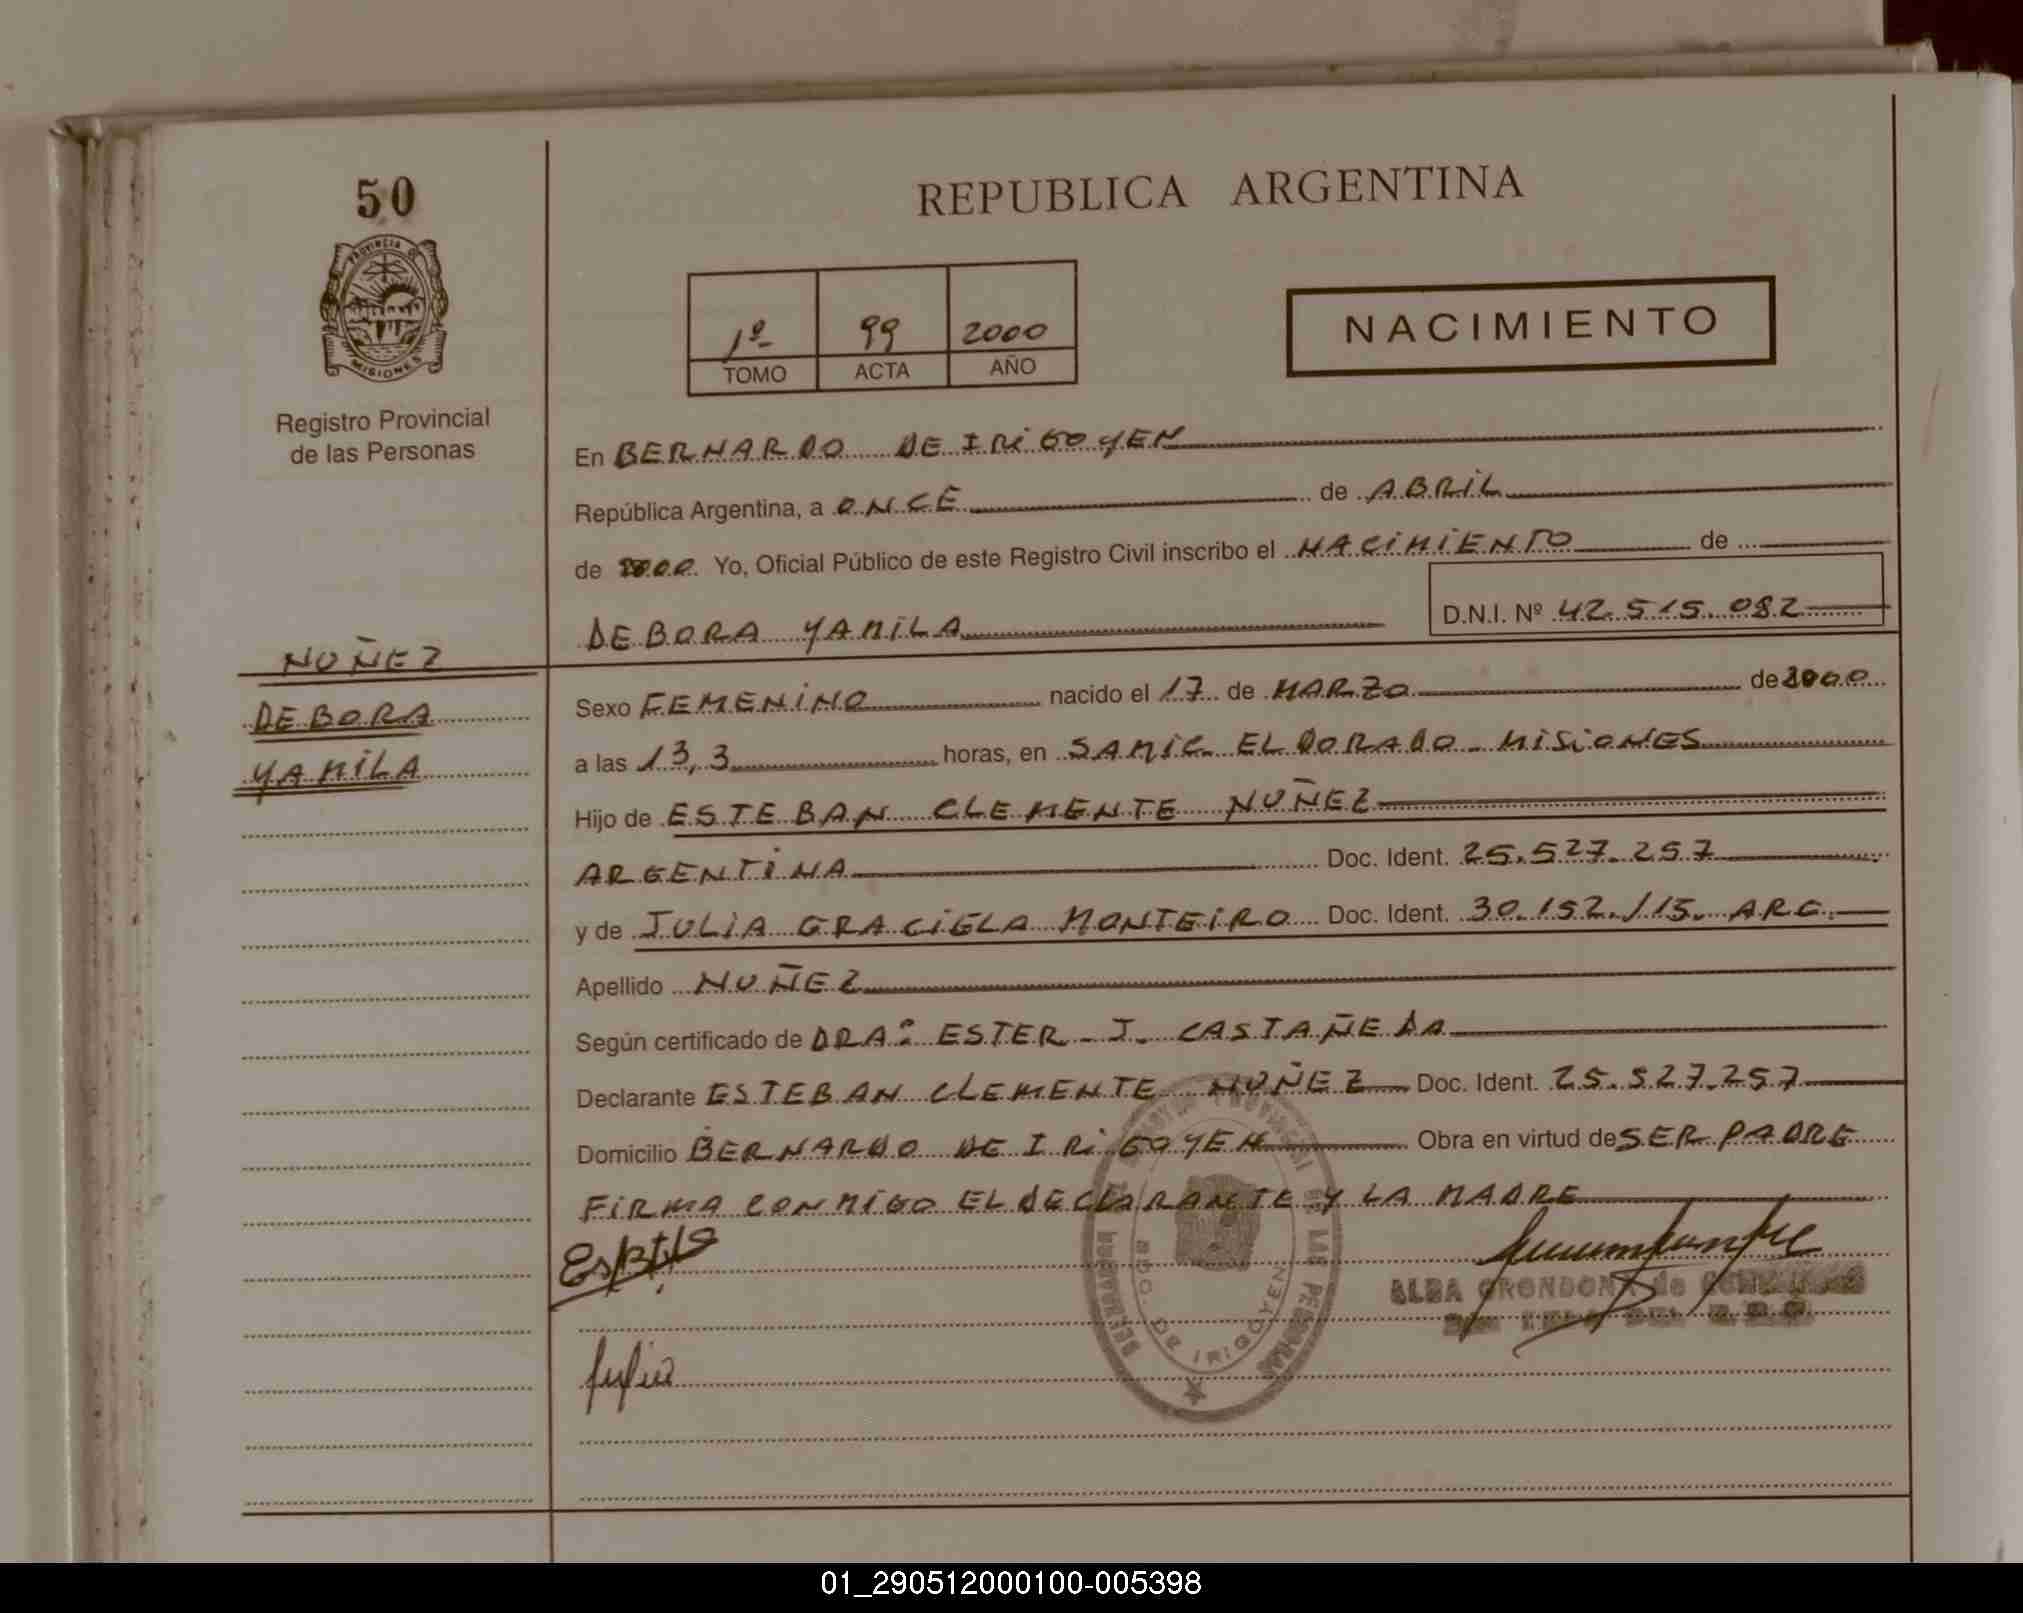 50
PROVINCIA DE
MISIONES
Registro Provincial
de las Personas
NUÑEZ
DEBORA
YAMILA
REPUBLICA ARGENTINA
1º 99 2000
TOMO ACTA AÑO
NACIMIENTO
En BERNARDO DE IRIGOYEN
República Argentina, a ONCE de ABRIL
de 2000 Yo, Oficial Público de este Registro Civil inscribo el NACIMIENTO de
DEBORA YAMILA D.N.I. Nº 42.515.082
Sexo FEMENINO nacido el 17 de MARZO de 2000
a las 13,3 horas, en SAMIC. ELDORADO - MISIONES
Hijo de ESTEBAN CLEMENTE NUÑEZ
ARGENTINA Doc. Ident. 25.527.257
y de JULIA GRACIELA MONTEIRO Doc. Ident. 30.152.115. ARG.
Apellido NUÑEZ
Según certificado de DRA: ESTER - J. CASTAÑEDA
Declarante ESTEBAN CLEMENTE NUÑEZ Doc. Ident. 25.527.257
Domicilio BERNARDO DE IRIGOYEN Obra en virtud de SER PADRE
FIRMA CONMIGO EL DECLARANTE Y LA MADRE
PROVINCIAL DE LAS PERSONAS
BDO. DE IRIGOYEN
ALBA GRONDONA de
Julia
01_290512000100-005398